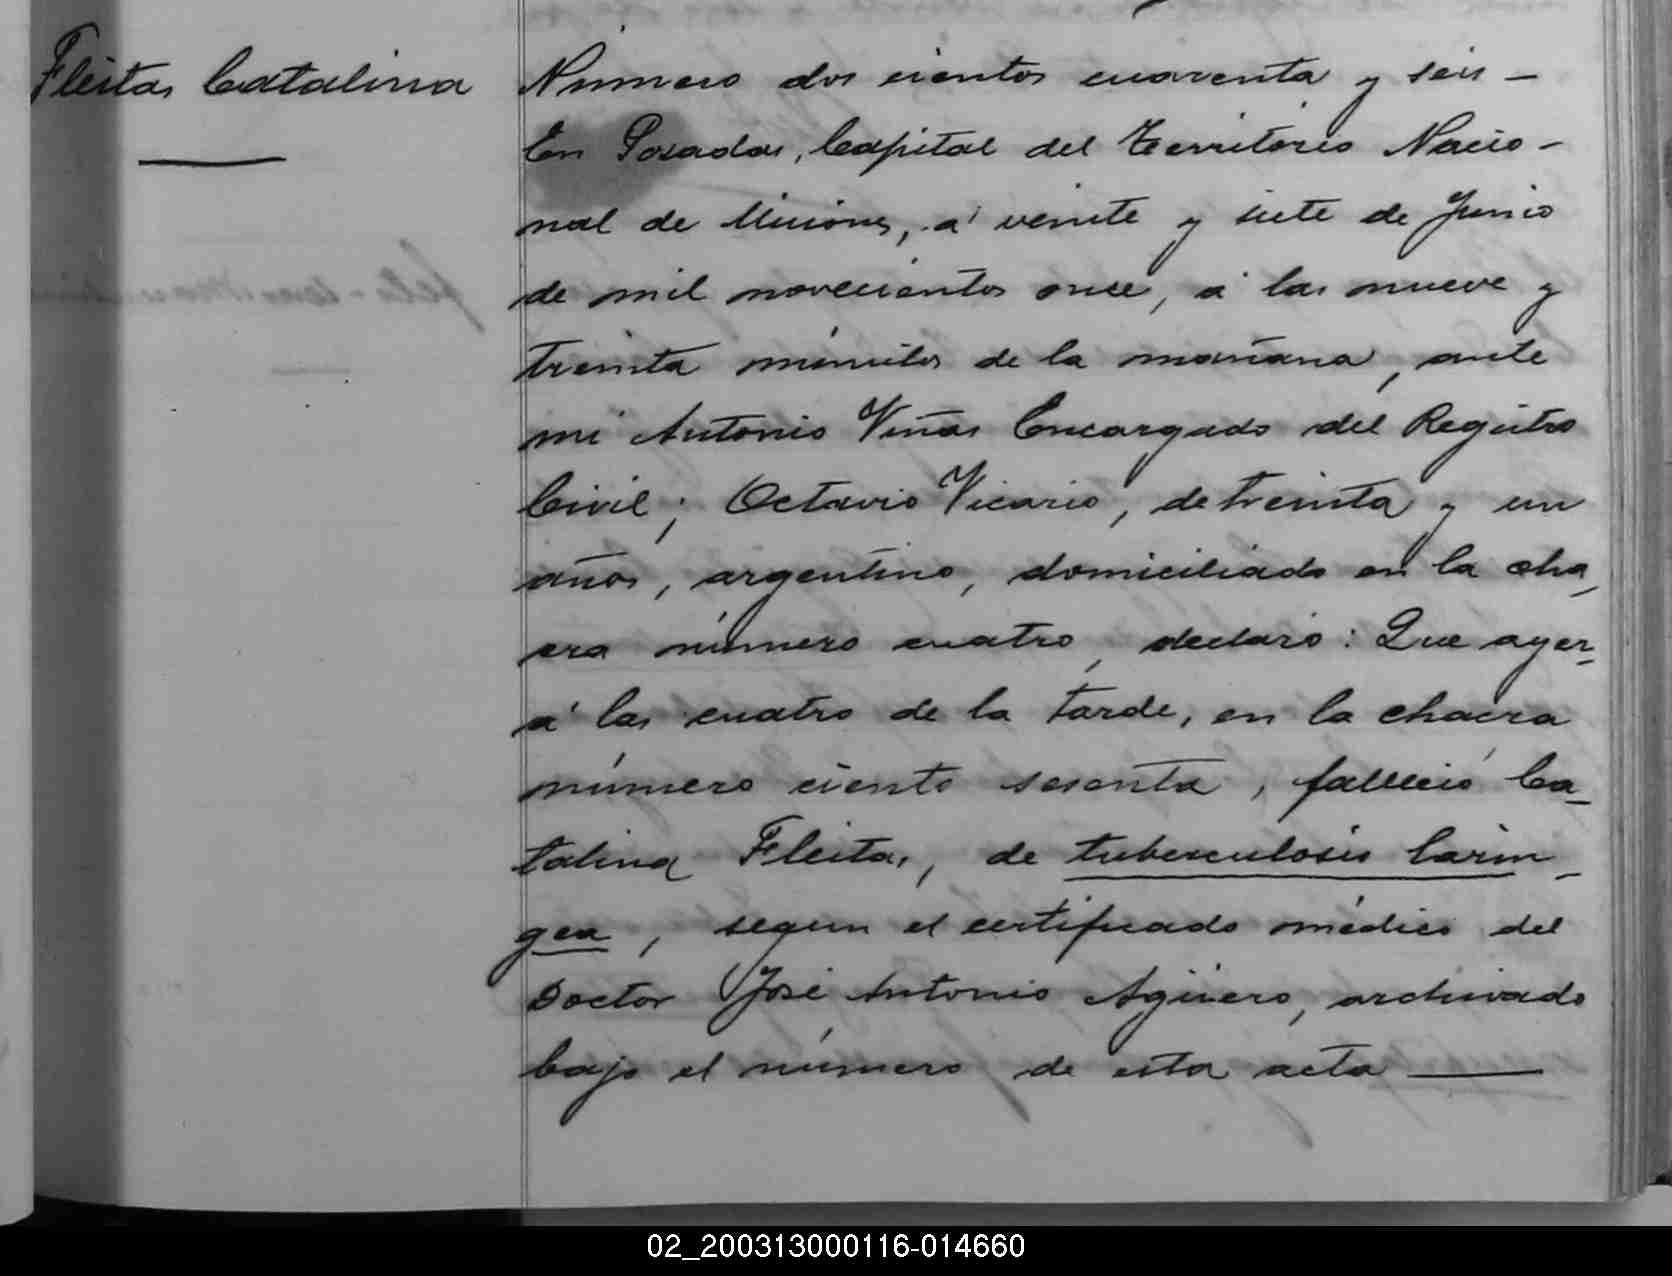 Fleitas Catalina
Número dos cientos cuarenta y seis —
En Posadas, Capital del Territorio Nacio-
nal de Misiones, á veinte y siete de Junio
de mil novecientos once, á las nueve y
treinta minutos de la mañana, ante
mi Antonio Viñas Encargado del Registro
Civil; Octavio Vicario, de treinta y un
años, argentino, domiciliado en la cha,
cra número cuatro, declaró: Que ayer-
á las cuatro de la tarde, en la chacra
número ciento sesenta, falleció Ca-
talina Fleitas, de tuberculosis larin-
gea, segun el certificado médico del
Doctor José Antonio Agüero, archivado
bajo el número de esta acta —
02_200313000116-014660